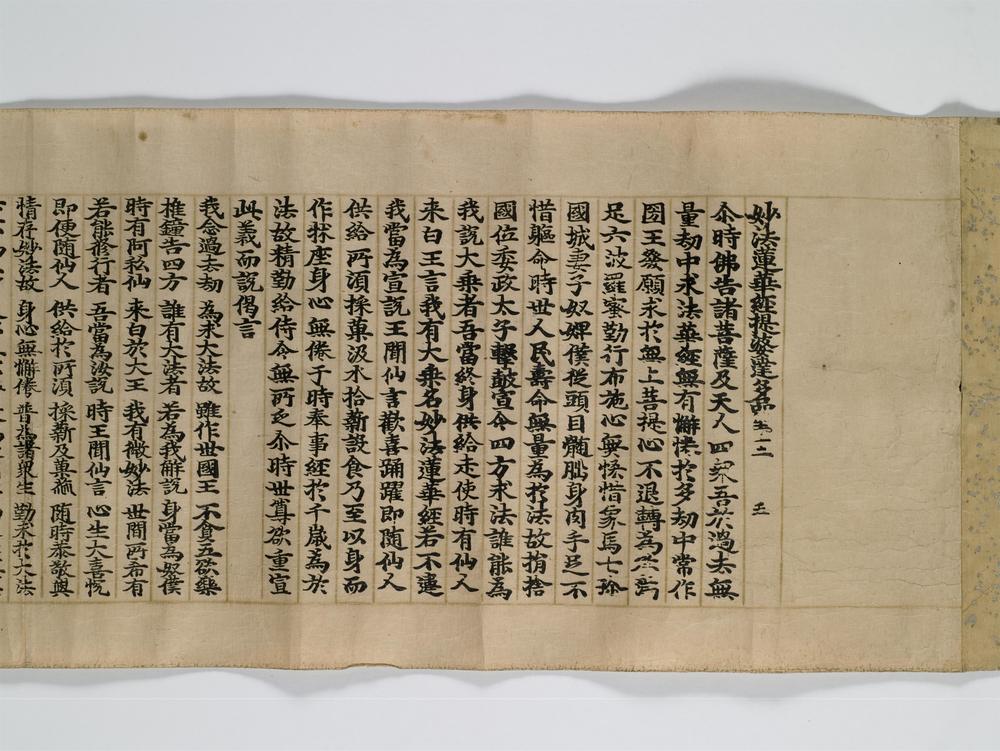 妙法蓮華經提婆達多品第十二 五
尒時佛告諸菩薩及天人四眾吾於過去無
量劫中求法華經無有懈惓於多劫中常作
國王發願求於無上菩提心不退轉為欲滿
足六波羅蜜勤行布施心無悋惜象馬七珍
國城妻子奴婢僕從頭目髓腦身肉手足不
惜軀命時世人民壽命無量為於法故捐捨
國位委政太子擊鼓宣令四方求法誰能為
我說大乗者吾當終身供給走使時有仙人
来白王言我有大乗名妙法蓮華經若不違
我當為宣說王聞仙言歡喜踊躍即隨仙人
供給所須採菓汲水拾薪設食乃至以身而
作牀座身心無倦于時奉事經於千歲為於
法故精勤給侍令無所乏尒時世尊欲重宣
此義而說偈言
我念過去劫 為求大法故 雖作世國王 不貪五欲樂
推鐘告四方 誰有大法者 若為我解說 身當為奴僕
時有阿私仙 来白於大王 我有微妙法 世間所希有
若能修行者 吾當為汝說 時王聞仙言 心生大喜悅
即便隨仙人 供給於所須 採薪及菓蓏 隨時恭敬與
情存妙法故 身心無懈倦 普為諸眾生 勤求於大法